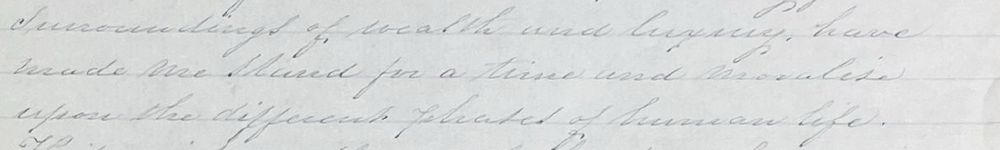 Surroundings of wealth and luxury, have
made me stand for a time and moralise
upon the different phases of human life.